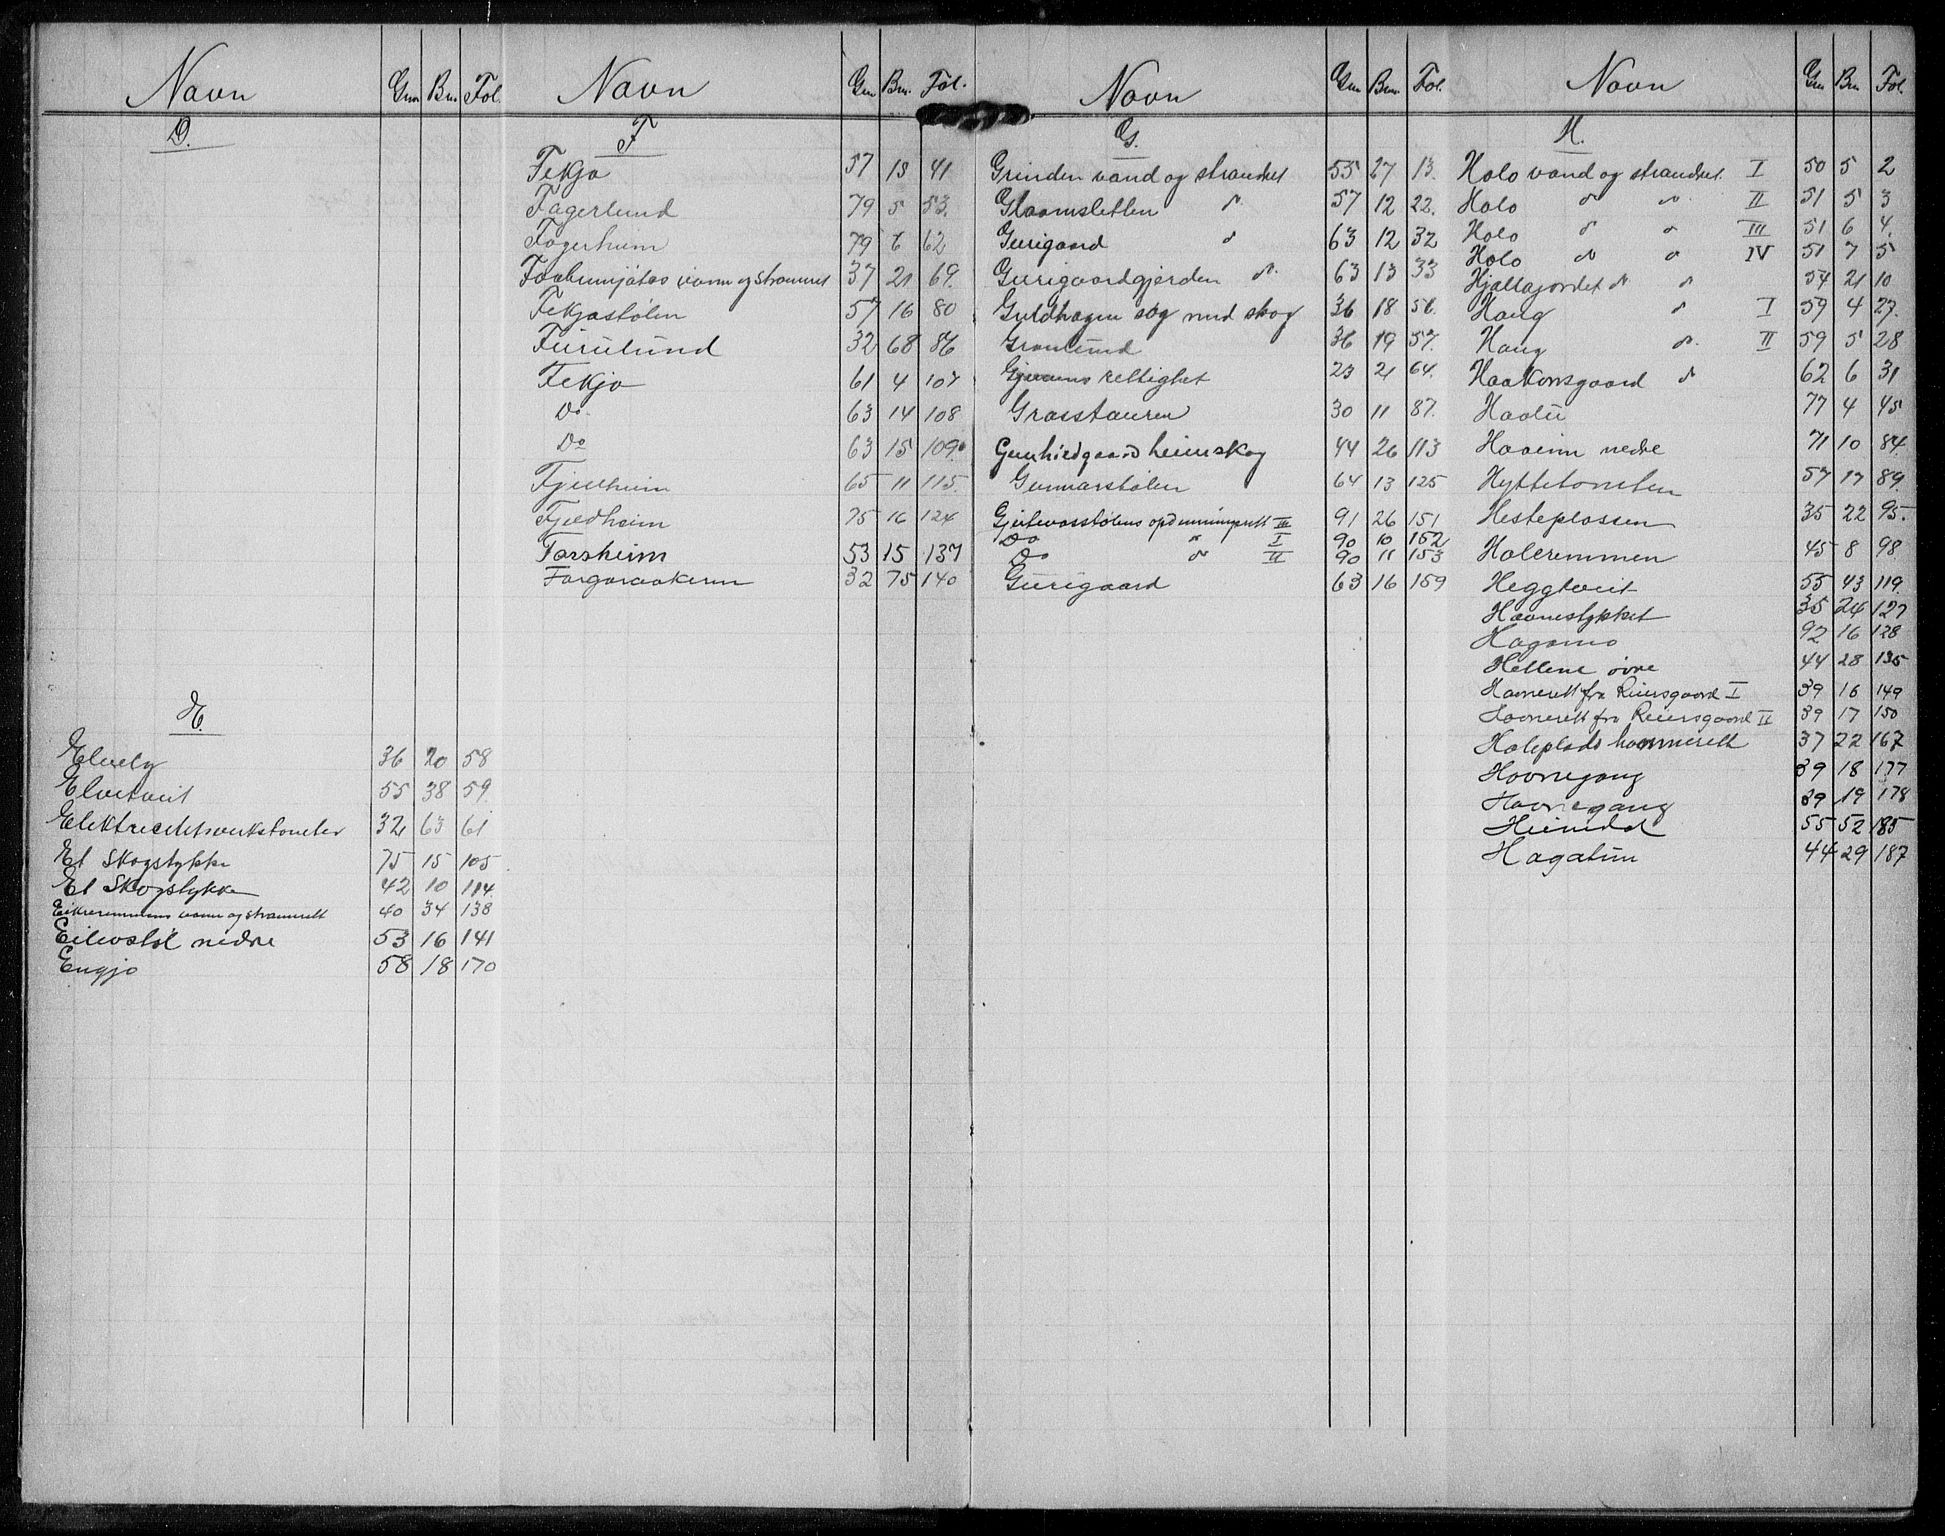 Navn Gnr Bnr Fol.
D.
E.
Elvely 36 20 58
Elvetveit 55 38 59
32 63 61
Et Skogstykke 75 15 105
Et Skogstykke 42 10 114
Eikeremmens vann og strannrett 40 34 138
Eilevstøl nedre 53 16 141
Engjo 58 18 170
Navn Gnr Bnr. Fol.
F
Fekjo 57 15 41
Fagerlund 79 5 53.
Fagerheim 79 6 62
vann og strannret 37 21 69.
Fekjastølen 57 16 80
Furulund 32 68 86
Fekjo 61 4 107
Do 63 14 108
Do 63 15 109.
Fjellheim 65 11 115.
Fjeldheim 75 16 124
Forsheim 53 15 137
Forgaraakeren 32 75 140
Navn Gnr Bnr Fol.
G.
Grinden vand og strandret 55 27 13.
Glaamsletten do 57 12 22.
Gurigaard do 63 12 32
Gurigaardgjerden do 63 13 33
Guldhagen sag med skog 36 18 56.
Granlund 36 19 57.
rettighet 23 21 64.
Grasstauren 30 11 87.
Gunhildgaard heimskog 44 26 113
Gunnarstølen 64 13 125
Gjeitevasstølens opdemningsrett III 91 26 151
Do " I 90 10 152
Do do II 90 11 153
Gurigaard 63 16 159
Navn Gnr Bnr Fol.
H.
Holo vand og strandret. I 50 5 2
Holo do do II 51 5 3
Holo do do III 51 6 4.
Holo do do IV 51 7 5
Hjallajordet do do 54 21 10
Haug do I 59 4 27.
Haug do II 59 5 28
Haakonsgaard do 62 6 31
Haatu 77 4 45
Haaeim nedre 71 10 84.
Hyttetomten 57 17 89.
Hesteplassen 35 22 95.
Holeremmen 45 8 98
Heggtveit 55 43 119.
Havnestykket 35 24 127
Hagamo 92 16 128
Hellene øvre 44 28 135
Havnerett fra Reiersgaard I 39 16 149
Havnerett fra Reiersgaard II 39 17 150
Holeplads havnnerett 37 22 167
Hovnegang 39 18 177
Havnegang 39 19 178
Heimdal 55 52 185
Hagatun 44 29 187